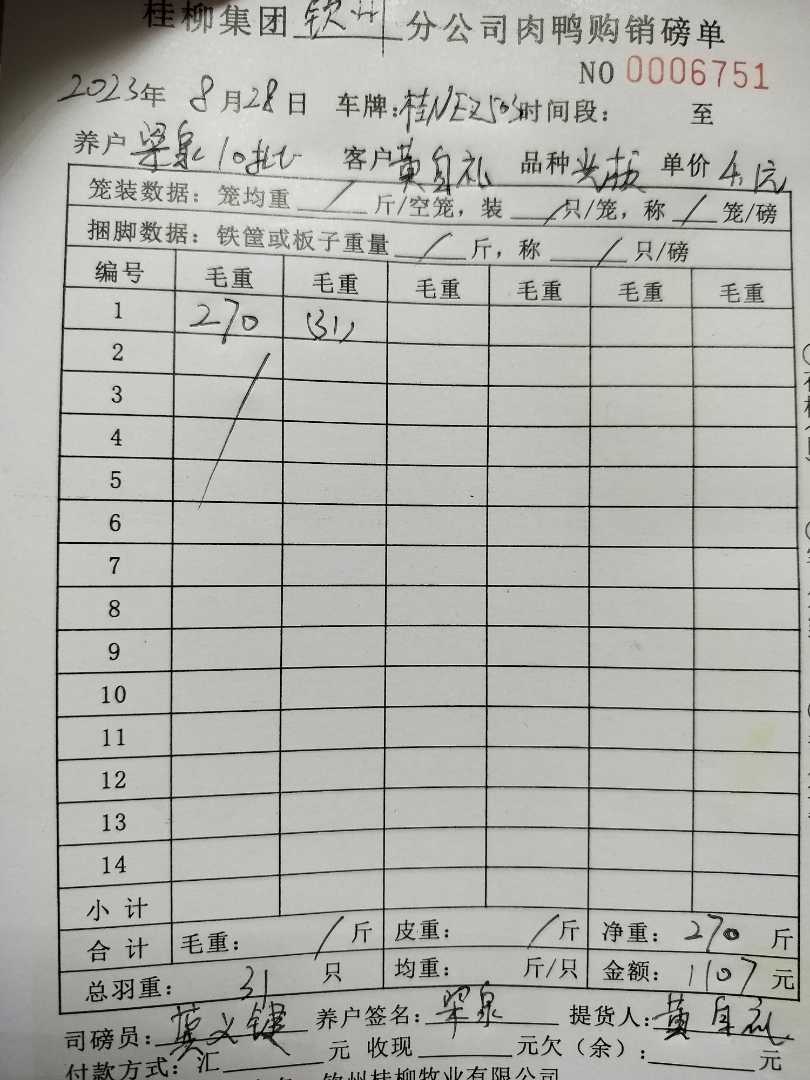 桂柳集团 钦州 分公司肉鸭购销磅单
NO 0006751
2023年 8月28日 车牌:桂NEZ503 时间段: 至
养户 梁泉 10批 客户 黄自礼 品种 单价 4.1元
笼装数据: 笼均重 / 斤/空笼, 装 / 只/笼, 称 / 笼/磅
捆脚数据: 铁筐或板子重量 / 斤, 称 / 只/磅
编号 毛重 毛重 毛重 毛重 毛重 毛重
1 270 (31)
2 /
3
4
5
6
7
8
9
10
11
12
13
14
小 计
合 计 毛重: / 斤 皮重: / 斤 净重: 270 斤
总羽重: 31 只 均重: 斤/只 金额: 1107 元
司磅员: 养户签名: 梁泉 提货人: 黄自礼
付款方式: 汇 元 收现 元欠(余): 元
钦州桂柳牧业有限公司